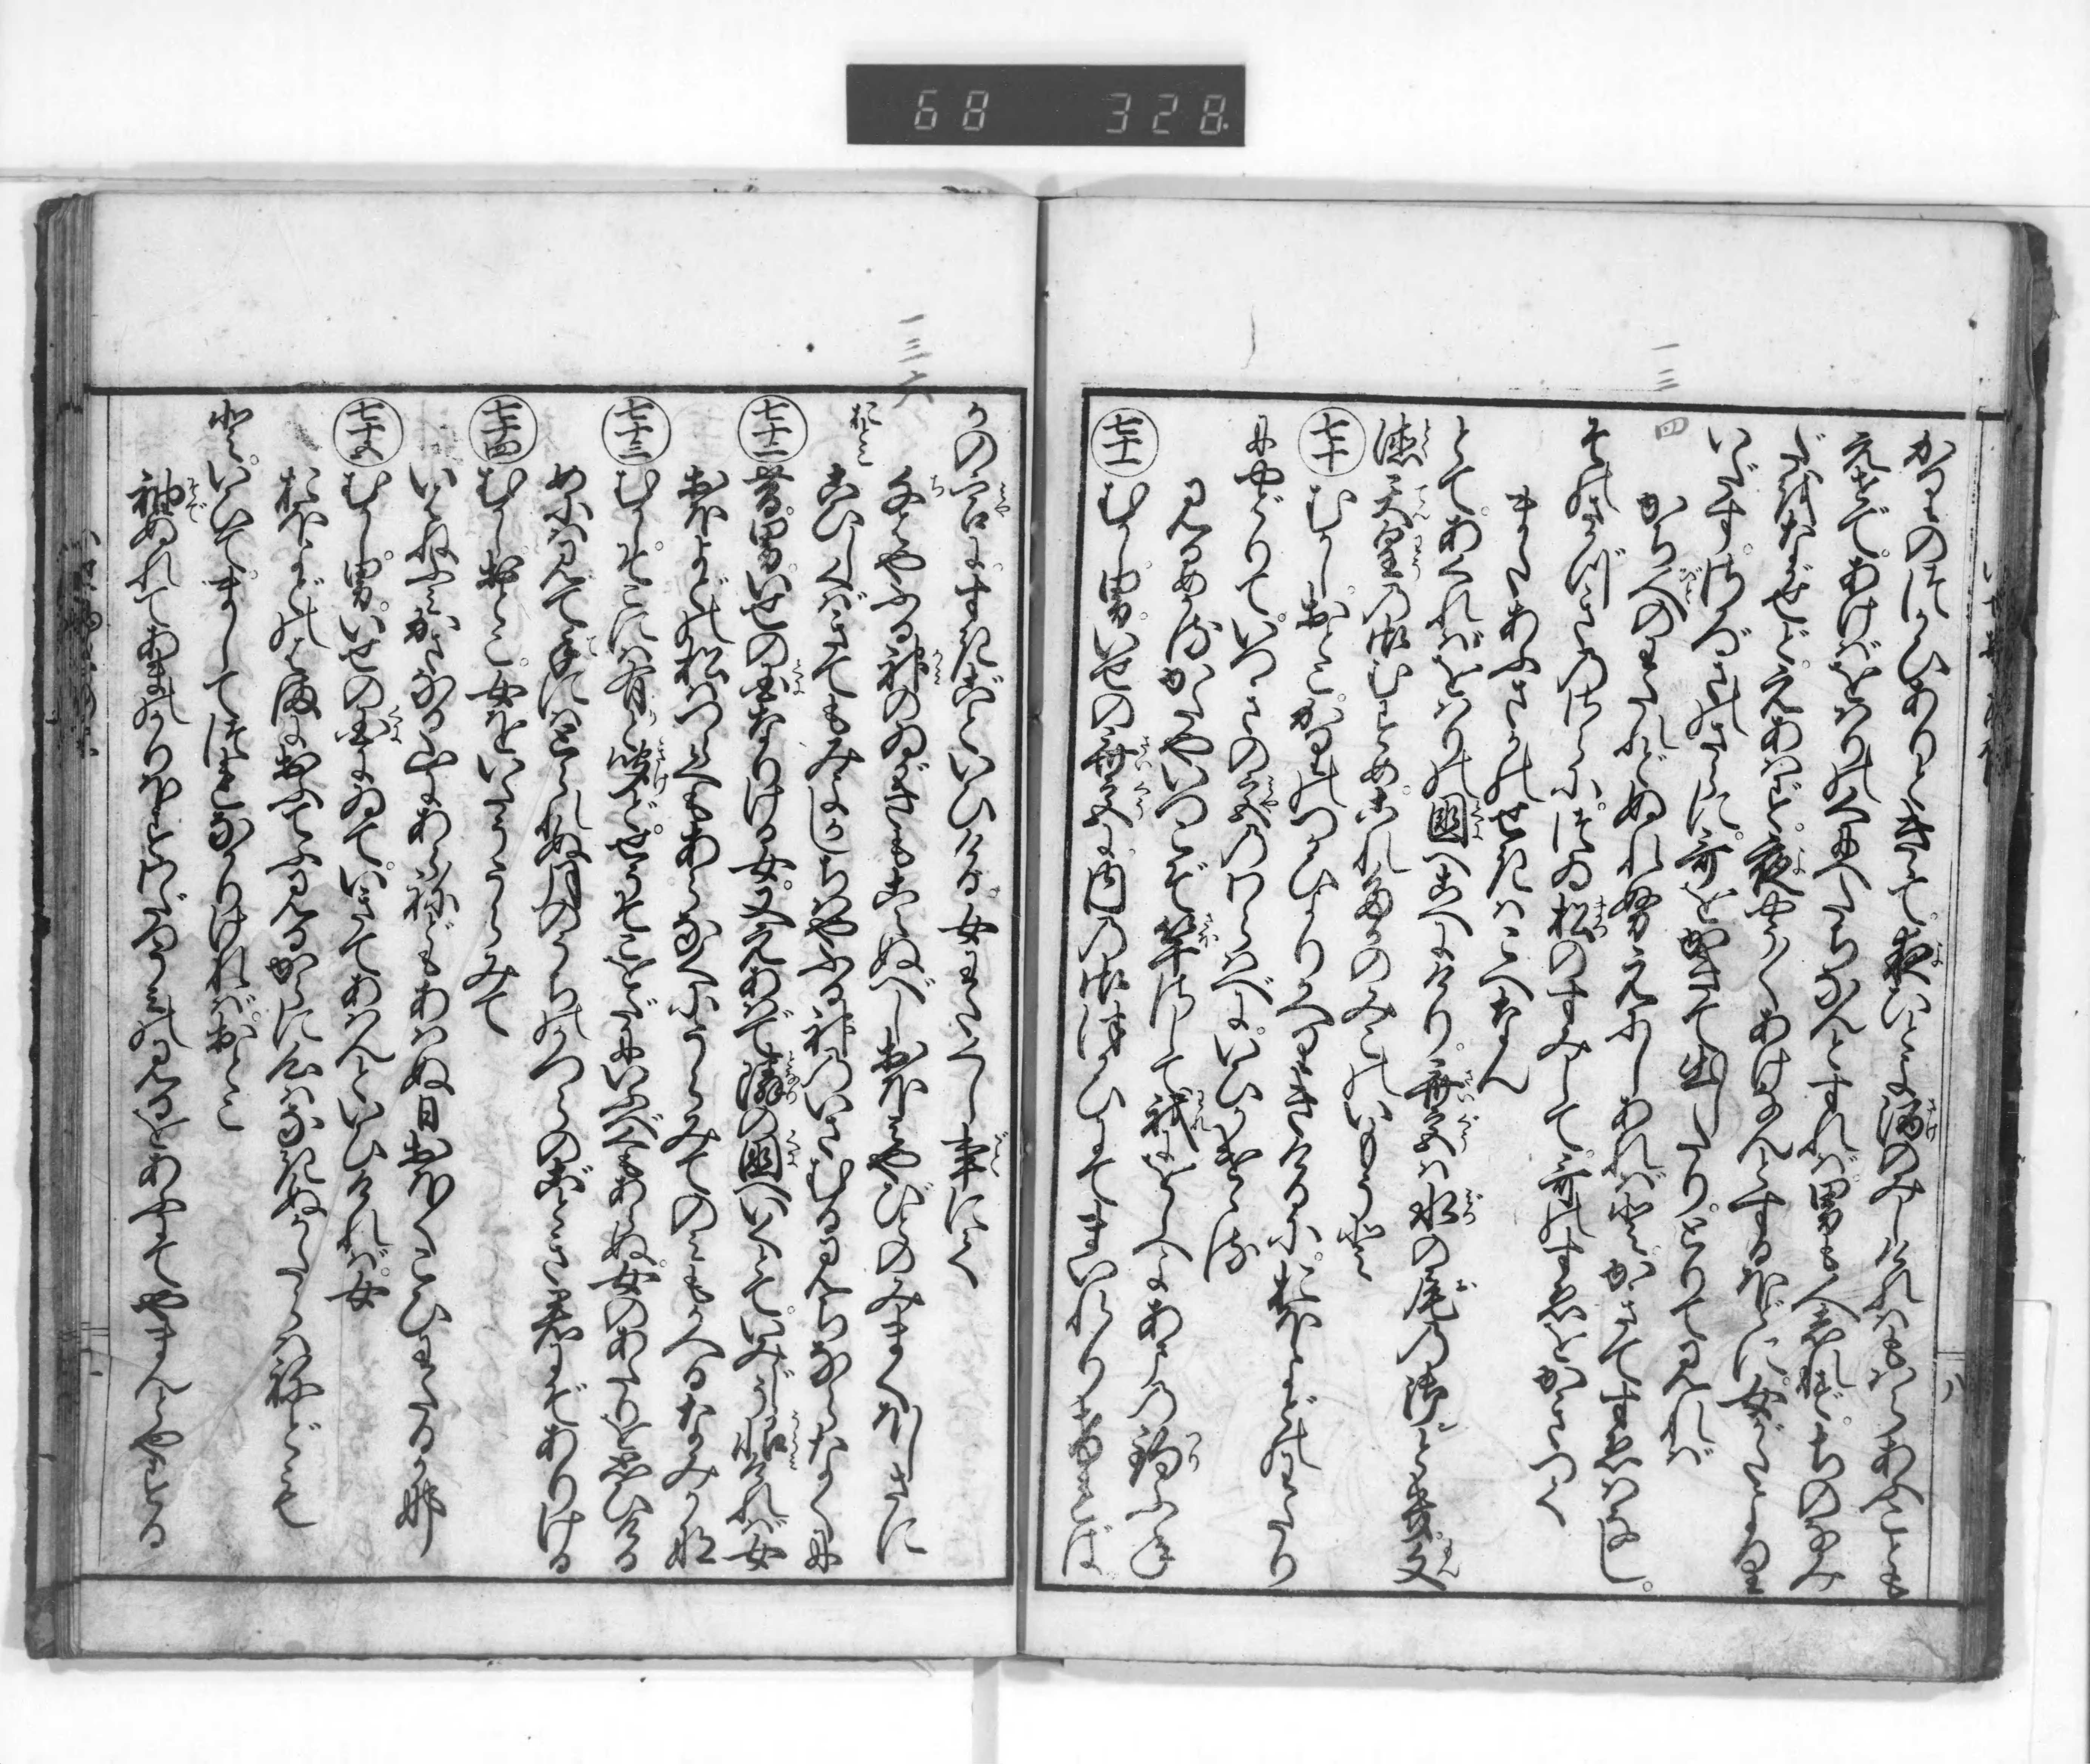 68 328
一三
四
かりのつかひありと聞て。夜ひとよ酒のみしければもはらあひごとも
えせで。あけばをはりの国へたちなんとすれば男も人しれず。ちのなみ
だをながせど。えあはず。夜やう〳〵あけなんとするほどに。女がたよりい
いだすさかづきのさらに。哥をかきて出したり。とりて見れば
かち人のわたれどぬれぬえにしあればと。かきてすゑはなし。
そのさかづきのさらに。ついの松のすみして。哥のすゑをかきつく
またあふさかのせきはこえなん
とて。あくればをはりの国へこえにけり。斎宮は水の尾の御とき文
徳天皇の御むすめこれたかのみこのいもうと
七十 むかし。おとこ。かりのつかひよりかへりきけるに。おほよどのわたり
にやどりて。いつきの宮のわらはべに。いひかけける
見るめかるかたやいづこぞ棹さして我にをしへよあまの釣ふね
七十一 むかし。男。いせの斎宮に内の御つかひにてまいれりければ
一三六
かの宮にすきごといひける。女わたくし事にて
千はやふる神のゐがきもこえぬべし大みや人のみまくほしさに
おとこ
恋しくばきても見よかしちはやふる神のいさむるみちならなくに
七十二 昔。男。いせの国なりける女。又えあはで。隣の国へいくとて。いみじう恨ければ。女
おほよどの松はつらくもあらなくにうらみてのみもかへるなみかな
七十三 むかし。そこには有ときけど。せうそこをだにいふべくもあらぬ。女のあたりを思ひける
めには見て手にはとられぬ月のうちのかつらのごとき君にぞありける
七十四 むかし。おとこ。女をいたううらみて
いはねふみかさなる山にあらねどもあはぬ日おほくこひわたるかな
七十五 むかし。男。いせの国にゐて。いきてあらんといひければ。女
おほよどのはまにおふてふみるからに心はなぎぬかたらはねども
と。いひて。ましてつれなかりければ。おとこ
袖ぬれてあまのかりほすわたつうみのみるをあふにてやまんとやする